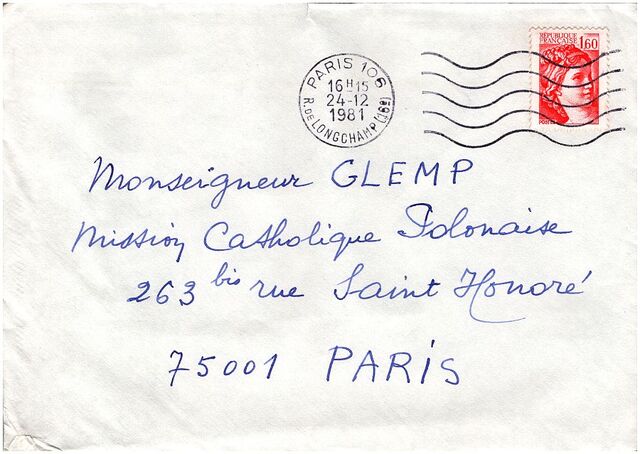 RÉPUBLIQUE
FRANÇAISE 1,60
PARIS 106
16H15
24-12
1981
R. DE LONGCHAMP (16e)
Monseigneur GLEMP
Mission Catholique Polonaise
263 bis rue Saint Honoré
75001 PARIS